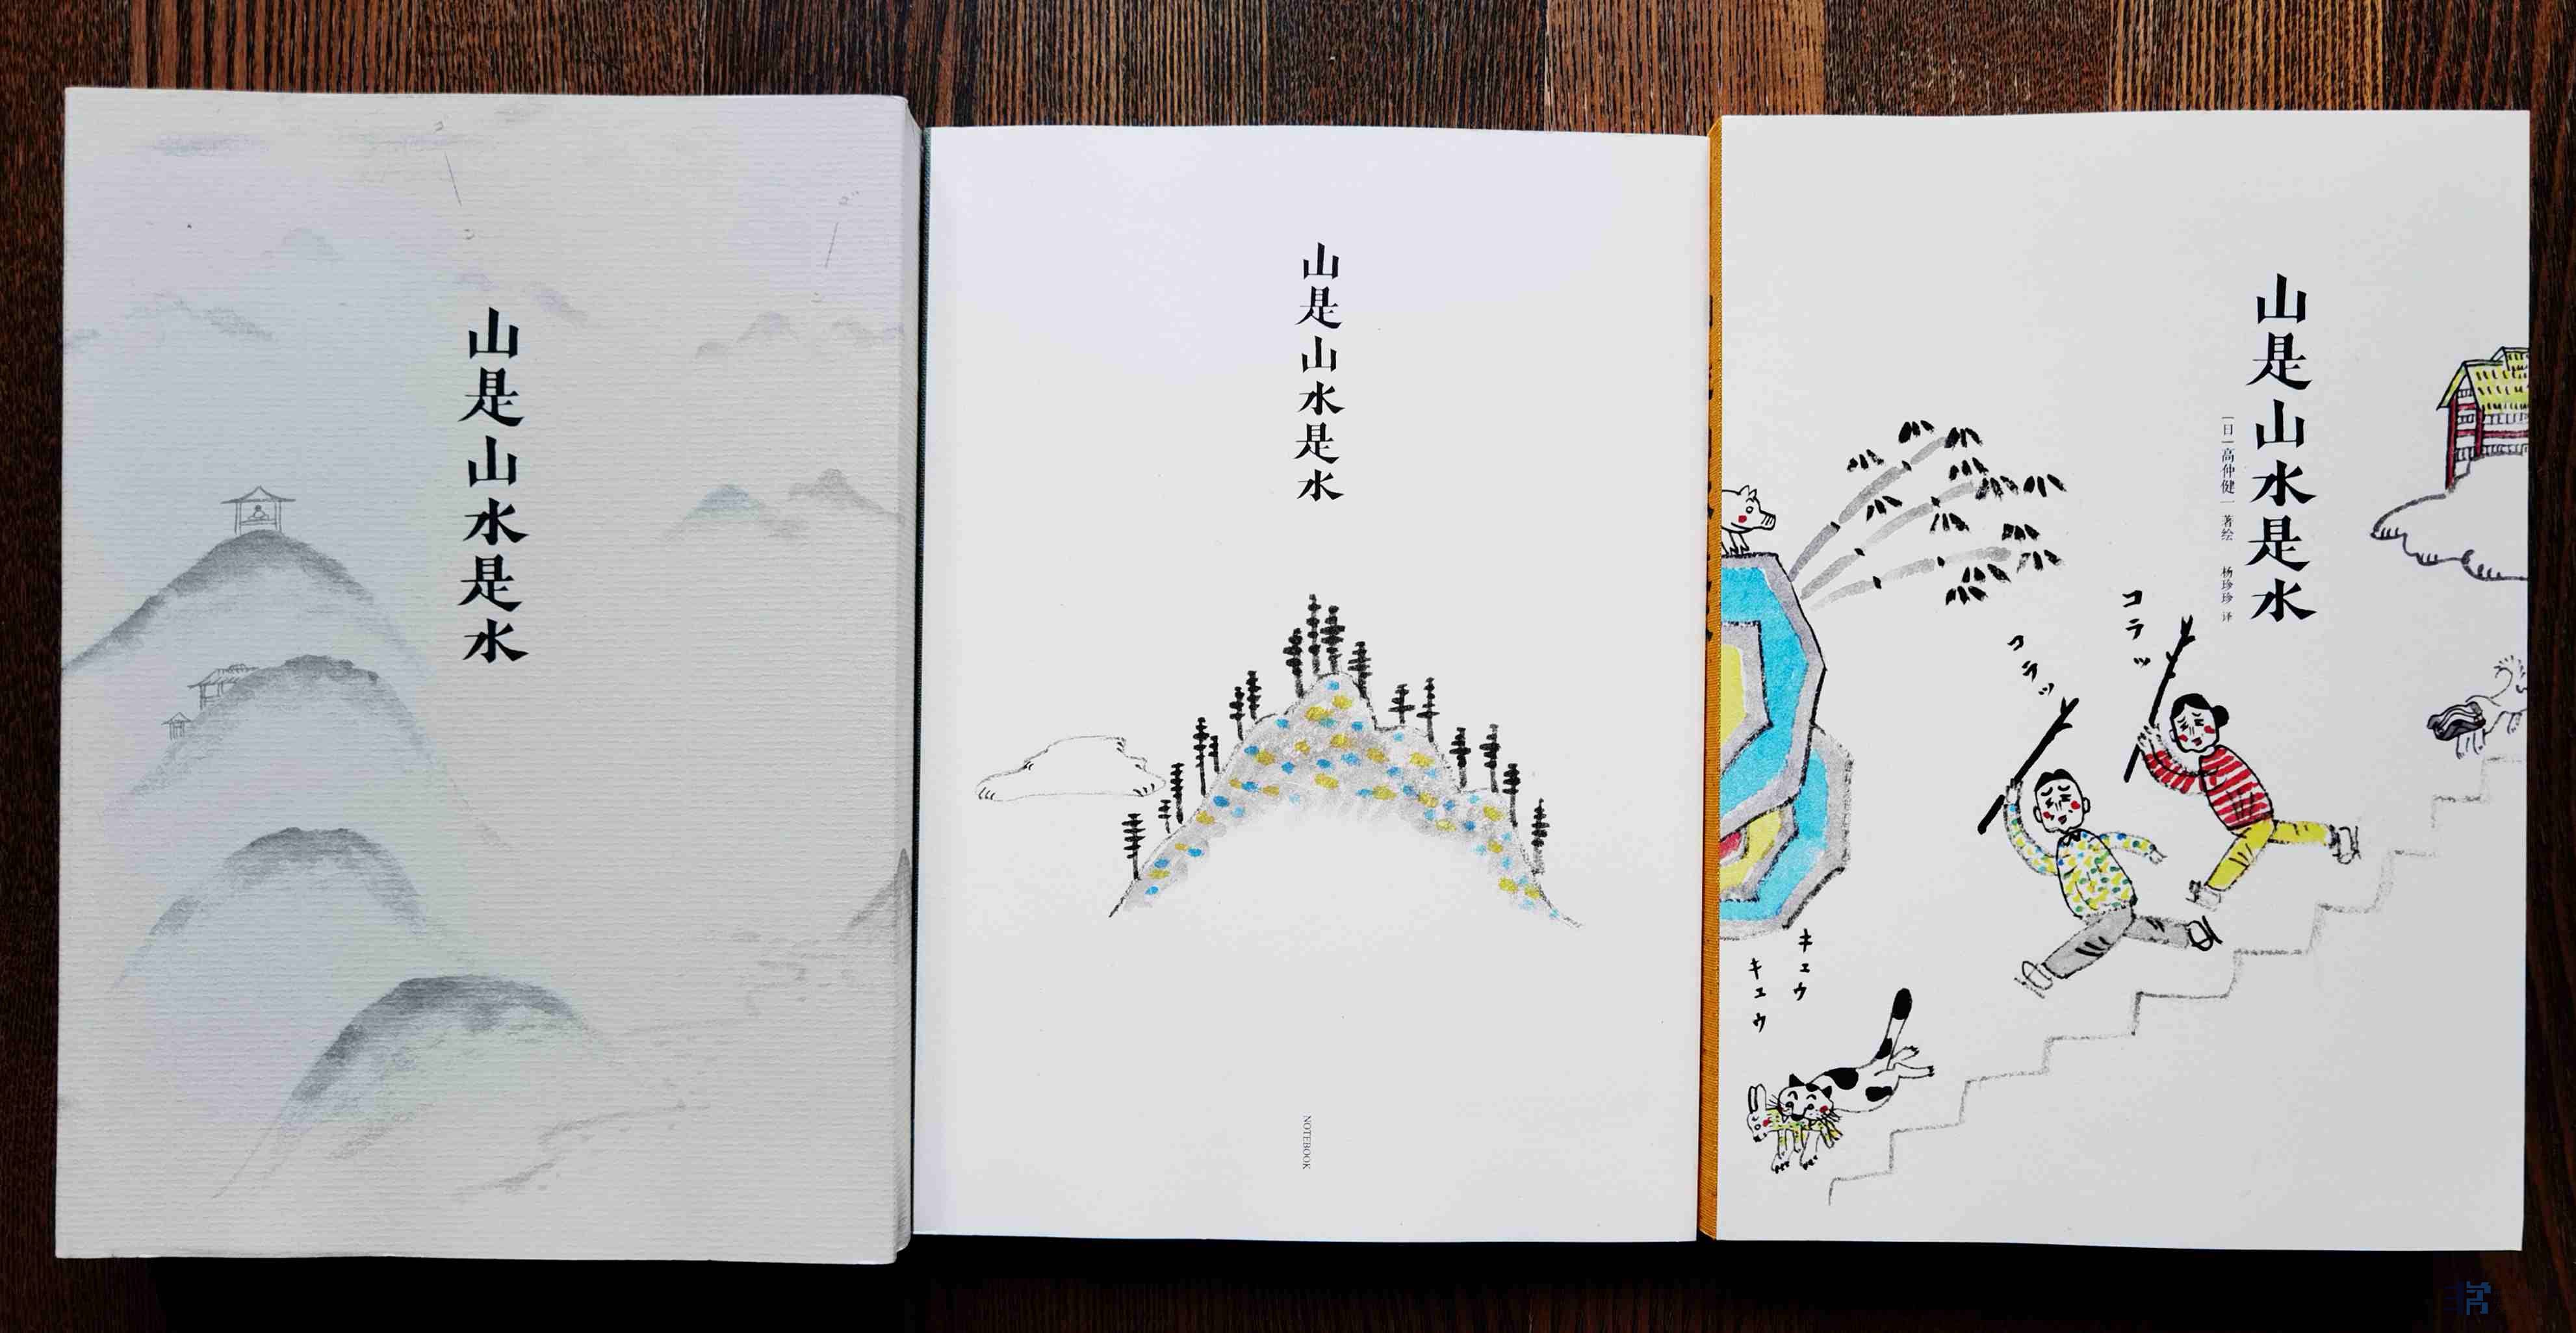 山是山水是水
山是山水是水
NOTEBOOK
山是山水是水
［日］高仲健一 著绘 杨珍珍 译
コラッ
コラッ
キュウ
キュウ